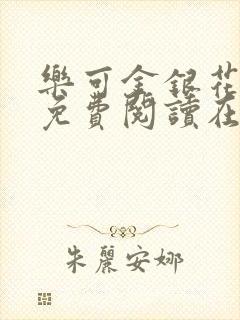 樂可金銀花
免費閱讀在
朱麗安娜